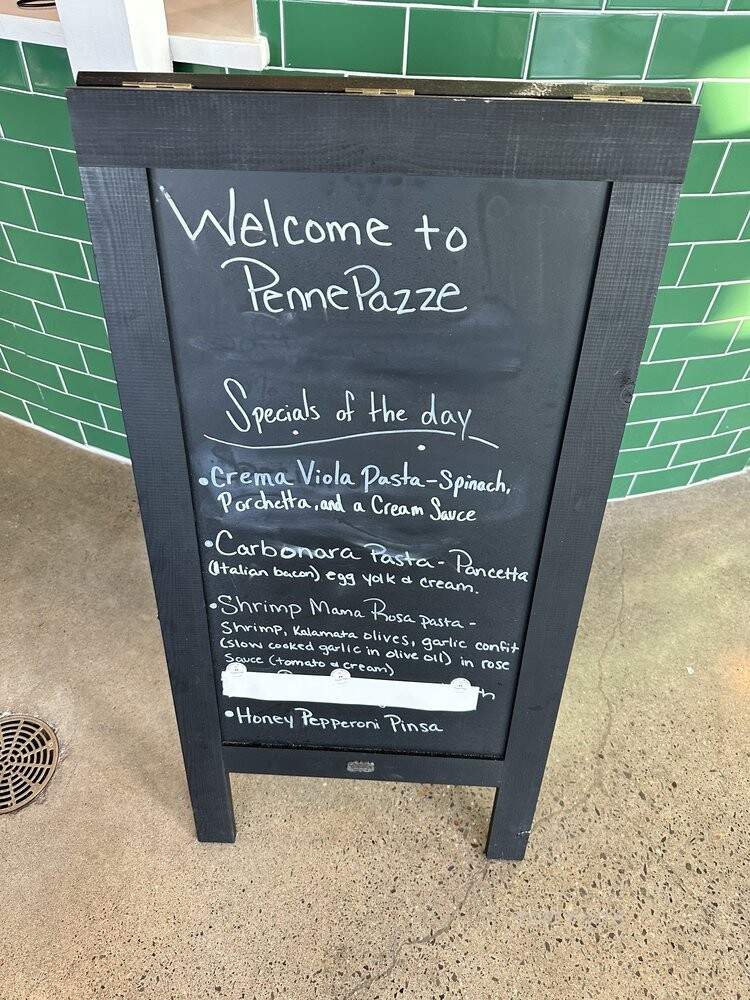 Welcome to
PennePazze
Specials of the day
• Crema Viola Pasta - Spinach,
Porchetta, and a Cream Sauce
• Carbonara Pasta - Pancetta
(Italian bacon) egg yolk & cream.
• Shrimp Mama Rosa pasta -
Shrimp, Kalamata olives, garlic confit
(slow cooked garlic in olive oil) in rose
Sauce (tomato & cream)
• Honey Pepperoni Pinsa